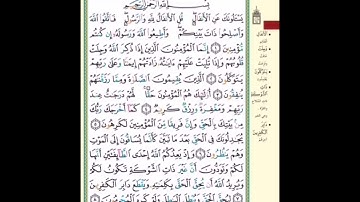 بِسْمِ اللَّهِ الرَّحْمَٰنِ الرَّحِيمِ
يَسْـَٔلُونَكَ عَنِ الْأَنفَالِ قُلِ الْأَنفَالُ لِلَّهِ وَالرَّسُولِ فَاتَّقُوا اللَّهَ
وَأَصْلِحُوا ذَاتَ بَيْنِكُمْ وَأَطِيعُوا اللَّهَ وَرَسُولَهُ إِن كُنتُم
مُّؤْمِنِينَ ۝ إِنَّمَا الْمُؤْمِنُونَ الَّذِينَ إِذَا ذُكِرَ اللَّهُ وَجِلَتْ
قُلُوبُهُمْ وَإِذَا تُلِيَتْ عَلَيْهِمْ ءَايَٰتُهُ زَادَتْهُمْ إِيمَٰنًا وَعَلَىٰ رَبِّهِمْ
يَتَوَكَّلُونَ ۝ الَّذِينَ يُقِيمُونَ الصَّلَوٰةَ وَمِمَّا رَزَقْنَٰهُمْ
يُنفِقُونَ ۝ أُولَٰئِكَ هُمُ الْمُؤْمِنُونَ حَقًّا لَّهُمْ دَرَجَٰتٌ عِندَ
رَبِّهِمْ وَمَغْفِرَةٌ وَرِزْقٌ كَرِيمٌ ۝ كَمَا أَخْرَجَكَ رَبُّكَ
مِن بَيْتِكَ بِالْحَقِّ وَإِنَّ فَرِيقًا مِّنَ الْمُؤْمِنِينَ لَكَٰرِهُونَ ۝
يُجَٰدِلُونَكَ فِي الْحَقِّ بَعْدَ مَا تَبَيَّنَ كَأَنَّمَا يُسَاقُونَ إِلَى الْمَوْتِ
وَهُمْ يَنظُرُونَ ۝ وَإِذْ يَعِدُكُمُ اللَّهُ إِحْدَى الطَّائِفَتَيْنِ أَنَّهَا
لَكُمْ وَتَوَدُّونَ أَنَّ غَيْرَ ذَاتِ الشَّوْكَةِ تَكُونُ لَكُمْ
وَيُرِيدُ اللَّهُ أَن يُحِقَّ الْحَقَّ بِكَلِمَٰتِهِ وَيَقْطَعَ دَابِرَ الْكَٰفِرِينَ